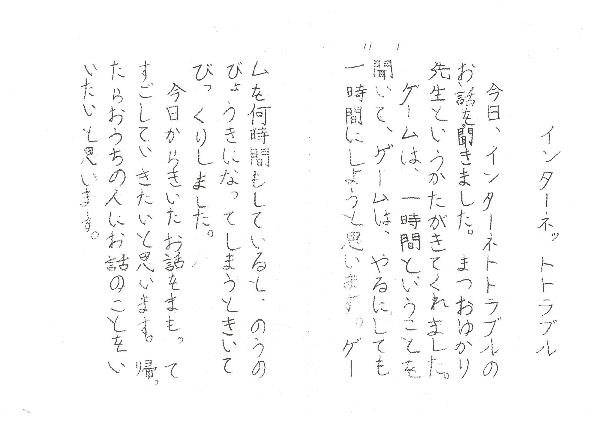 インターネットトラブル
今日、インターネトトラブルの
お話を聞きました。まつおゆかり
先生というかたがきてくれました。
ゲームは、一時間ということを
聞いて、ゲームは、やるにしても
一時間にしようと思います。ゲー
ムを何時間もしていると、のうの
びょうきになってしまうときいて
びっくりしました。
今日からきいたお話をまもって
すごしていきたいと思います。帰っ
たらおうちの人にお話のことをい
いたいと思います。